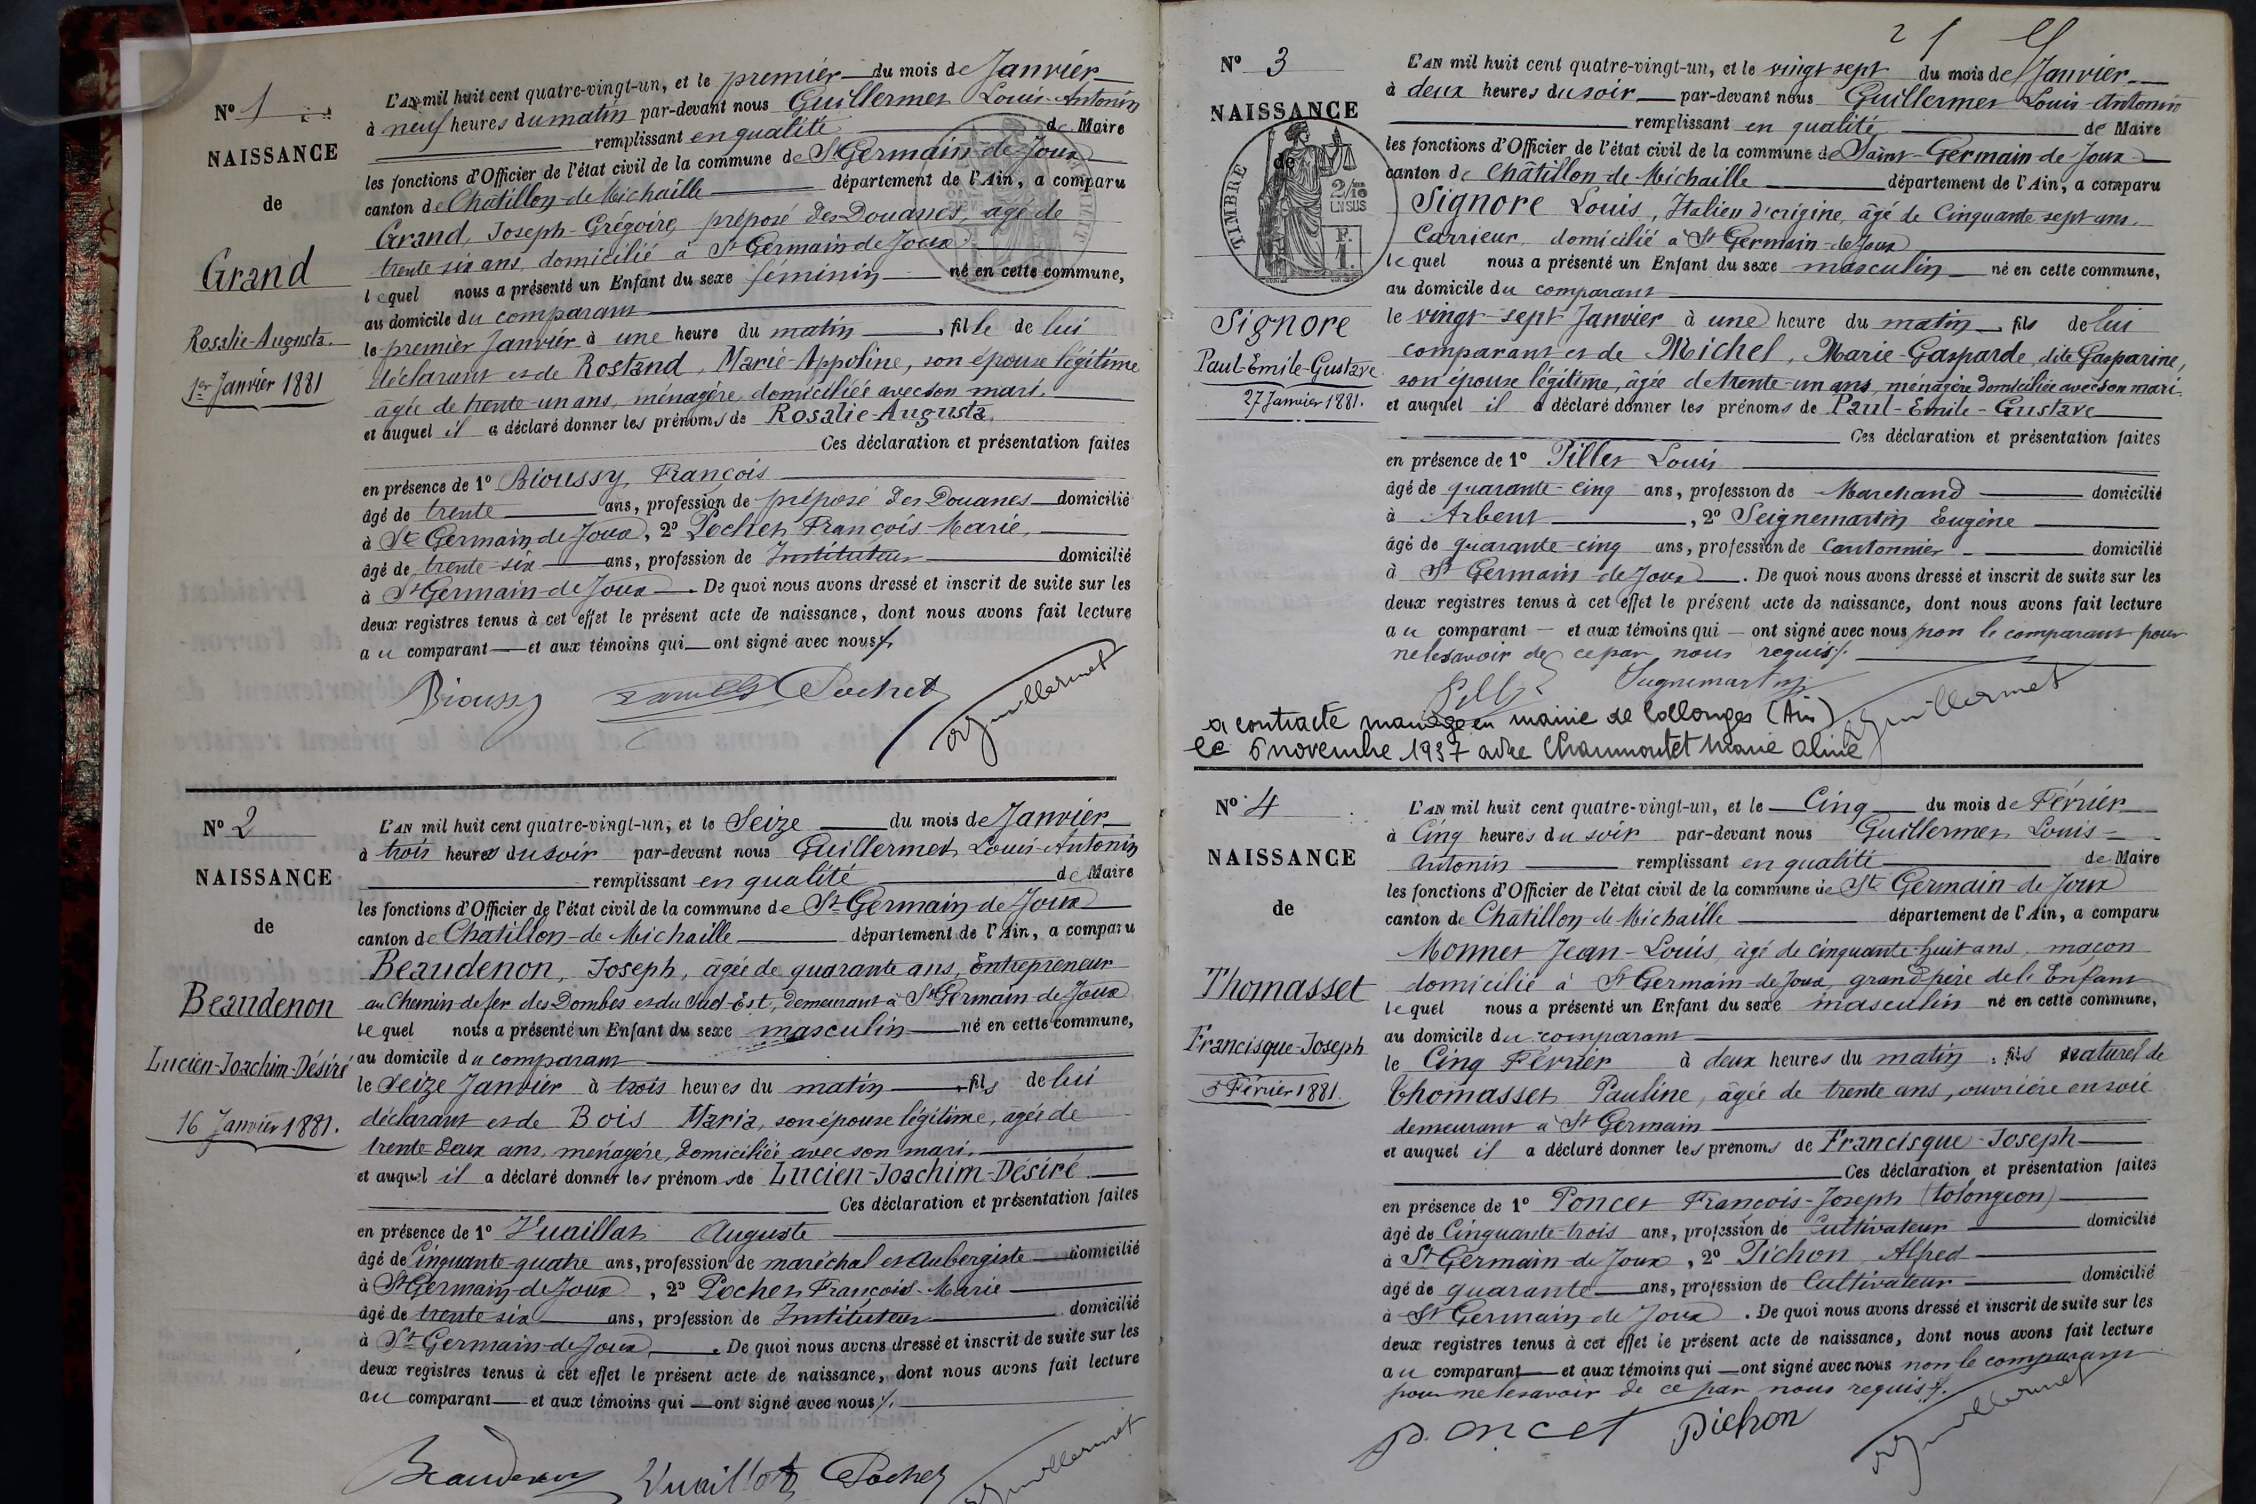 N° 1
NAISSANCE
de
Grand
Rosalie-Augusta.
1er Janvier 1881
L'AN mil huit cent quatre-vingt-un, et le premier du mois de Janvier
à neuf heures du matin par-devant nous Guillermet Louis-Antonin
remplissant en qualité de Maire
les fonctions d'Officier de l'état civil de la commune de St Germain-de-Joux
canton de Châtillon-de-Michaille département de l'Ain, a comparu
Grand, Joseph-Grégoire, préposé des Douanes, âgé de
trente six ans, domicilié à St Germain de Joux
lequel nous a présenté un Enfant du sexe féminin né en cette commune,
au domicile du comparant
le premier Janvier à une heure du matin, fille de lui
déclarant et de Rostand, Marie-Appoline, son épouse légitime
âgée de trente-un ans, ménagère, domiciliée avec son mari.
et auquel il a déclaré donner les prénoms de Rosalie-Augusta.
Ces déclaration et présentation faites
en présence de 1° Bioussy, François
âgé de trente ans, profession de préposé des Douanes domicilié
à St Germain-de-Joux, 2° Pochet François-Marie,
âgé de trente-six ans, profession de Instituteur domicilié
à St Germain-de-Joux. De quoi nous avons dressé et inscrit de suite sur les
deux registres tenus à cet effet le présent acte de naissance, dont nous avons fait lecture
au comparant et aux témoins qui ont signé avec nous.
Bioussy Pochet Guillermet
N° 2
NAISSANCE
de
Beaudenon
Lucien-Joachim-Désiré
16 Janvier 1881.
L'AN mil huit cent quatre-vingt-un, et le Seize du mois de Janvier
à trois heures du soir par-devant nous Guillermet Louis-Antonin
remplissant en qualité de Maire
les fonctions d'Officier de l'état civil de la commune de St Germain-de-Joux
canton de Châtillon-de-Michaille département de l'Ain, a comparu
Beaudenon, Joseph, âgée de quarante ans, Entrepreneur
au Chemin-de-fer des Dombes et du Sud-Est, demeurant à St Germain-de-Joux
lequel nous a présenté un Enfant du sexe masculin né en cette commune,
au domicile du comparant
le Seize Janvier à trois heures du matin, fils de lui
déclarant et de Bois Maria, son épouse légitime, âgée de
trente deux ans, ménagère, domiciliée avec son mari.
et auquel il a déclaré donner les prénoms de Lucien-Joachim-Désiré
Ces déclaration et présentation faites
en présence de 1° Vuaillat Auguste
âgé de Cinquante-quatre ans, profession de maréchal et Aubergiste domicilié
à St Germain-de-Joux, 2° Pochet François-Marie
âgé de trente six ans, profession de Instituteur domicilié
à St Germain-de-Joux. De quoi nous avons dressé et inscrit de suite sur les
deux registres tenus à cet effet le présent acte de naissance, dont nous avons fait lecture
au comparant et aux témoins qui ont signé avec nous.
Beaudenon Vuaillat Pochet Guillermet
N° 3
NAISSANCE
de
TIMBRE
2/10 EN SUS
Signore
Paul-Emile-Gustave
27 Janvier 1881.
L'AN mil huit cent quatre-vingt-un, et le vingt sept du mois de Janvier
à deux heures du soir par-devant nous Guillermet Louis Antonin
remplissant en qualité de Maire
les fonctions d'Officier de l'état civil de la commune de Saint-Germain-de-Joux
canton de Châtillon-de-Michaille département de l'Ain, a comparu
Signore Louis, Italien d'origine, âgé de Cinquante sept ans.
Carrieur, domicilié à St Germain-de-Joux
lequel nous a présenté un Enfant du sexe masculin né en cette commune,
au domicile du comparant
le vingt-sept Janvier à une heure du matin, fils de lui
comparant et de Michel, Marie-Gasparde, dite Gasparine,
son épouse légitime, âgée de trente-un ans, ménagère domiciliée avec son mari.
et auquel il a déclaré donner les prénoms de Paul-Emile-Gustave
Ces déclaration et présentation faites
en présence de 1° Piller Louis
âgé de quarante-cinq ans, profession de Marchand domicilié
à Arbent, 2° Seignemartin Eugène
âgé de quarante-cinq ans, profession de Cantonnier domicilié
à St Germain-de-Joux. De quoi nous avons dressé et inscrit de suite sur les
deux registres tenus à cet effet le présent acte de naissance, dont nous avons fait lecture
au comparant et aux témoins qui ont signé avec nous non le comparant pour
ne le savoir de ce par nous requis.
Seignemartin Guillermet
a contracté mariage en mairie de Collonges (Ain)
le 6 novembre 1937 avec Charmontet Marie Aline
N° 4
NAISSANCE
de
Thomasset
Francisque-Joseph
5 Février 1881.
L'AN mil huit cent quatre-vingt-un, et le Cinq du mois de Février
à Cinq heures du soir par-devant nous Guillermet Louis-
Antonin remplissant en qualité de Maire
les fonctions d'Officier de l'état civil de la commune de St Germain-de-Joux
canton de Châtillon-de-Michaille département de l'Ain, a comparu
Monnet Jean-Louis, âgé de cinquante-huit ans, maçon
domicilié à St Germain-de-Joux, grand père de l'Enfant
lequel nous a présenté un Enfant du sexe masculin né en cette commune,
au domicile du comparant
le Cinq Février à deux heures du matin, fils naturel de
Thomasset Pauline, âgée de trente ans, ouvrière en soie
demeurant à St Germain
et auquel il a déclaré donner les prénoms de Francisque-Joseph
Ces déclaration et présentation faites
en présence de 1° Poncet François-Joseph (tolongeon)
âgé de Cinquante-trois ans, profession de Cultivateur domicilié
à St Germain de Joux, 2° Pichon Alfred
âgé de quarante ans, profession de Cultivateur domicilié
à St Germain de Joux. De quoi nous avons dressé et inscrit de suite sur les
deux registres tenus à cet effet le présent acte de naissance, dont nous avons fait lecture
au comparant et aux témoins qui ont signé avec nous non le comparant
pour ne le savoir de ce par nous requis.
Poncet Pichon Guillermet